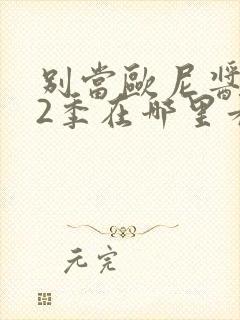 别當歐尼醬
2季在哪里
元完